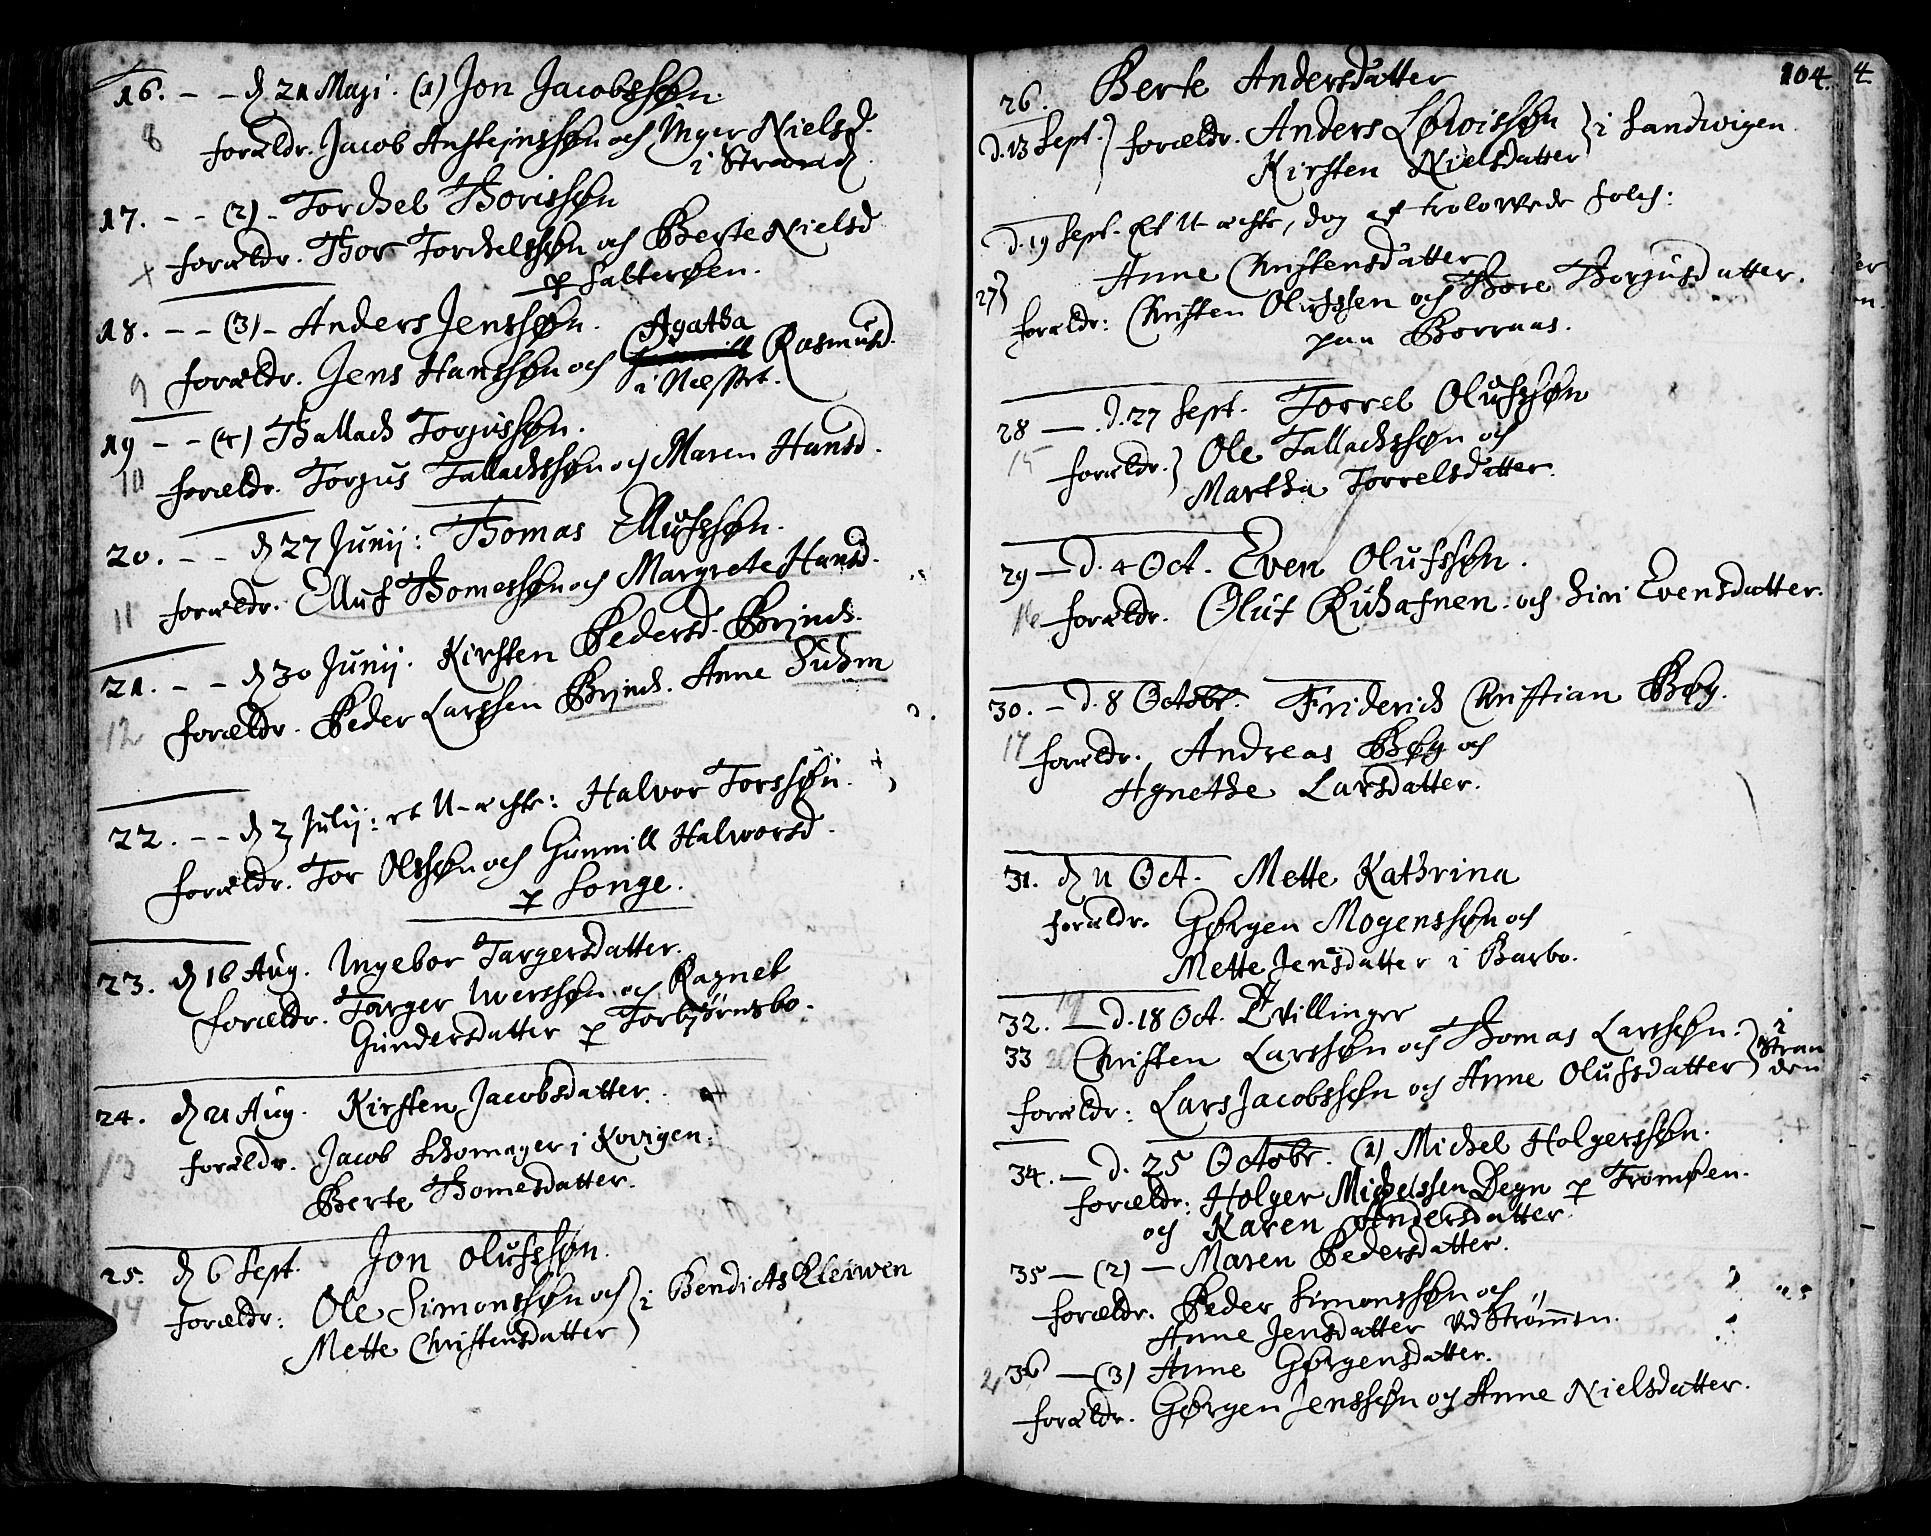 16. - - d 21 Maji. (1) Jon Jacobssøn.
8
forældr. Jacob Ansteinssøn och Inger Nielsd.
i Strand.
17. - - (2) - Torchel Thorissøn
forældr. Thor Torchelssøn och Berte Nielsd
p Salterøen.
18. - - (3) - Anders Jenssøn.
Agatha
9 forældr. Jens Hanssøn och Rasmusd.
i Næsset.
19 - - (4) Thallach Torjussøn.
10 forældr. Torjus Tallachssøn och Maren Hansd.
20. - - d 27 Junij: Thomas Ellufssøn.
11 forældr. Elluf Thomessøn och Margrete Hansd.
21. - - d 30 Junij. Kirsten Pedersd. Brinch.
12 forældr. Peder Larssen Brinch. Anne Suhm
22. - - d 2 Julij: et U-ægte: Halvor Torssøn.
forældr. Tor Olssøn och Gunnill Halworsd.
p Songe.
23. d 16 Aug. Ingebor Targersdatter.
forældr. Targer Iverssøn och Ragnel
Gundersdatter p Torbjørnsbo.
24. d 21 Aug. Kirsten Jacobsdatter.
13 forældr. Jacob Schomager i Kovigen.
Berte Thomesdatter.
25. d 6 Sept. Jon Olufssøn.
14 forældr: Ole Simonssøn och } i Bendicts Kleiwen
Mette Christensdatter
104.
26. Berte Andersdatter
d. 13 Sept. } forældr. Anders Lowissøn } i Sandwigen.
Kirsten Nielsdatter
d. 19 Sept. Et U-ægte, dog af trolowede folch:
27 } Anne Christensdatter
forældr: Christen Olufssøn och Thore Thorjusdatter.
paa Borraas.
28 — d. 27 Sept. Torrel Olufssøn
15 forældr. } Ole Tallachssøn och
Martha Torrelsdatter.
29 — d. 4 Oct. Even Olufssøn.
16 forældr. Oluf Ruhafnen. och Siri Evensdatter.
30. — d. 8 Octobr. Friderich Christian Bøg.
17 forældr. Andreas Bøg och
Agnethe Larsdatter.
31. d 11 Oct. Mette Kathrina
forældr. Gørgen Mogenssøn och
Mette Jensdatter i Barbo.
19
32. — d. 18 Oct. Tvillinger
33 20 Christen Larssøn och Thomas Larssøn. } i
Stran
den
forældr: Lars Jacobssøn och Anne Olufsdatter
34. — d. 25 Octobr. (1) Michel Holgerssøn.
forældr: Holger Michelssen Degn p Tromøen.
och Karen Andersdatter.
35 — (2) — Maren Pedersdatter.
forældr. Peder Simonssøn och
Anne Jensdatter ved Strømmen.
36 — (3) Anne Gørgensdatter.
forældr. Gørgen Jenssøn och Anne Nielsdatter.